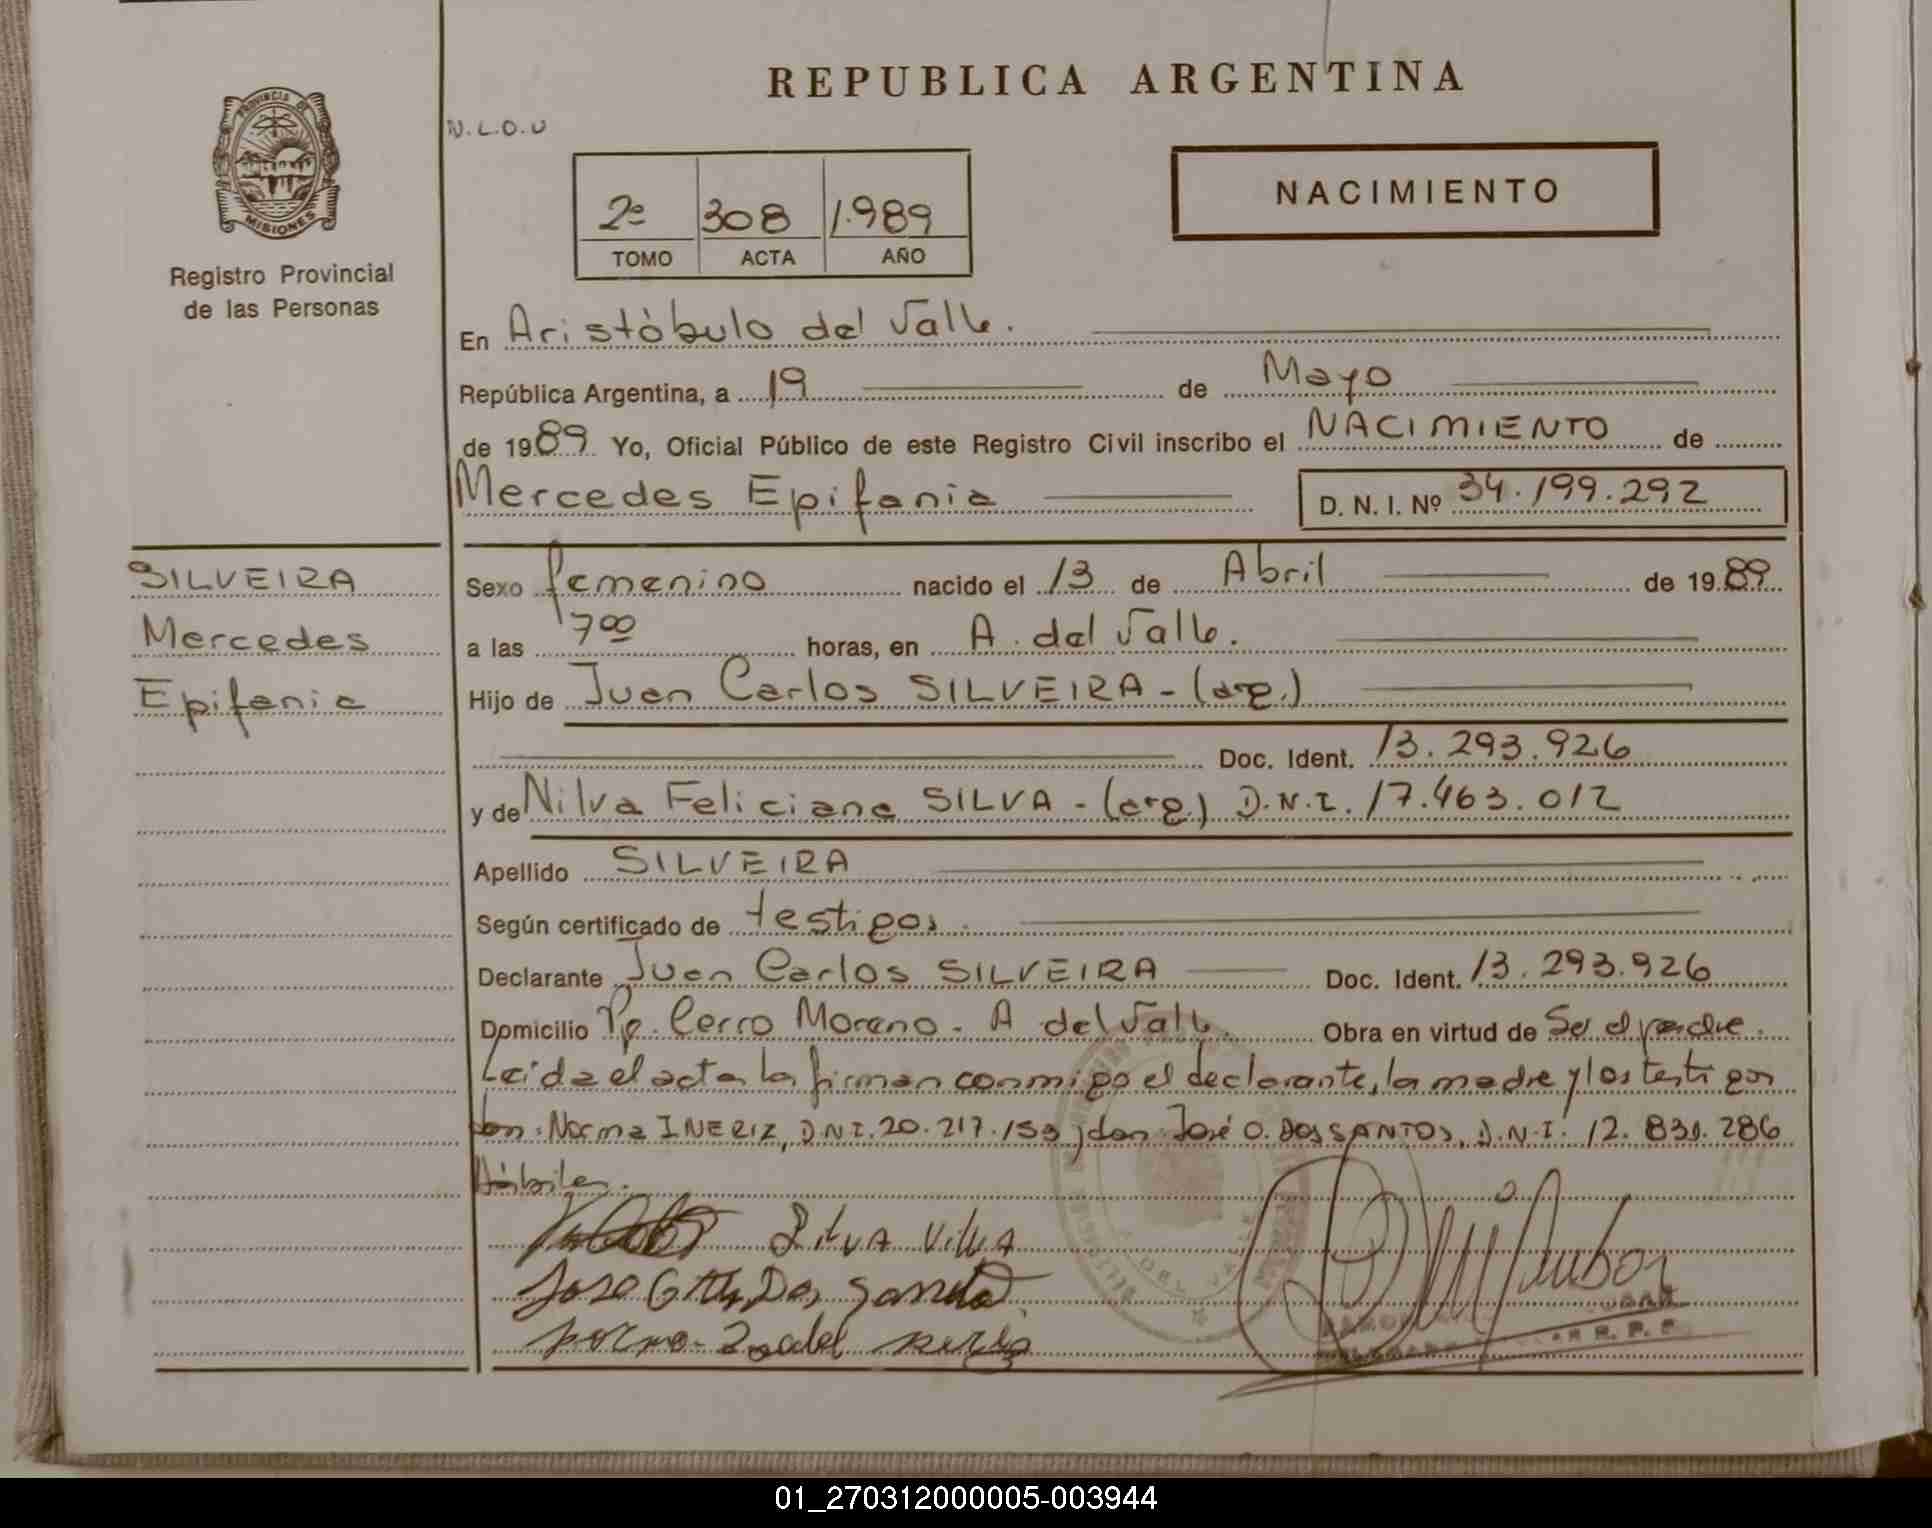 REPUBLICA ARGENTINA
PROVINCIA DE
MISIONES
Registro Provincial
de las Personas
N.L.O.U
2º 308 1.989
TOMO ACTA AÑO
NACIMIENTO
En Aristóbulo del Valle.
República Argentina, a 19 de Mayo
de 1989 Yo, Oficial Público de este Registro Civil inscribo el NACIMIENTO de
Mercedes Epifania D. N. I. Nº 34.199.292
SILVEIRA
Mercedes
Epifania
Sexo femenino nacido el 13 de Abril de 1989
a las 7 00 horas, en A. del Valle.
Hijo de Juan Carlos SILVEIRA - (arg.)
Doc. Ident. 13.293.926
y de Nilva Feliciana SILVA - (arg.) D.N.I. 17.463.012
Apellido SILVEIRA
Según certificado de testigos.
Declarante Juan Carlos SILVEIRA Doc. Ident. 13.293.926
Domicilio Pq. Cerro Moreno - A del Valle. Obra en virtud de Ser el padre.
Leida el acta la firman conmigo el declarante, la madre y los testigos
don: Norma INERIZ, D.N.I. 20.217.153 y don José O. DOS SANTOS, D.N.I. 12.830.286
Hábiles.
Silva Nilva
Jose Dos Santo
01_270312000005-003944